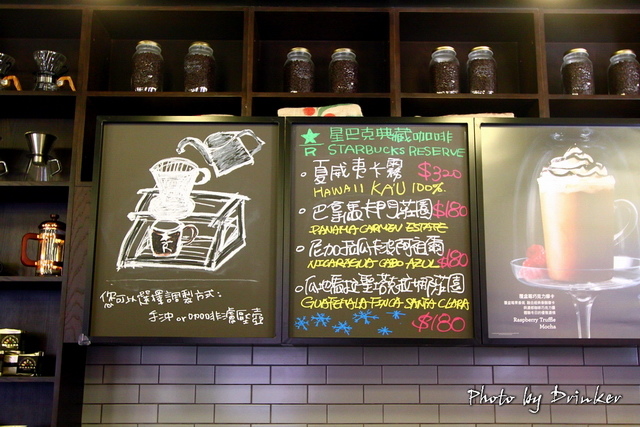 您可以選擇調製方式：
手沖 or 咖啡濾壓壺
R
星巴克典藏咖啡
STARBUCKS RESERVE
夏威夷卡霧 $320
HAWAII KA'U 100%
巴拿馬卡門莊園 $180
PANAMA CARMEN ESTATE
尼加拉瓜卡波阿蘇爾 $180
NICARAGUA CABO AZUL
瓜地馬拉聖塔克拉娜莊園
GUATEMALA FINCA SANTA CLARA
$180
覆盆莓巧克力摩卡
Raspberry Truffle
Mocha
Photo by Drinker